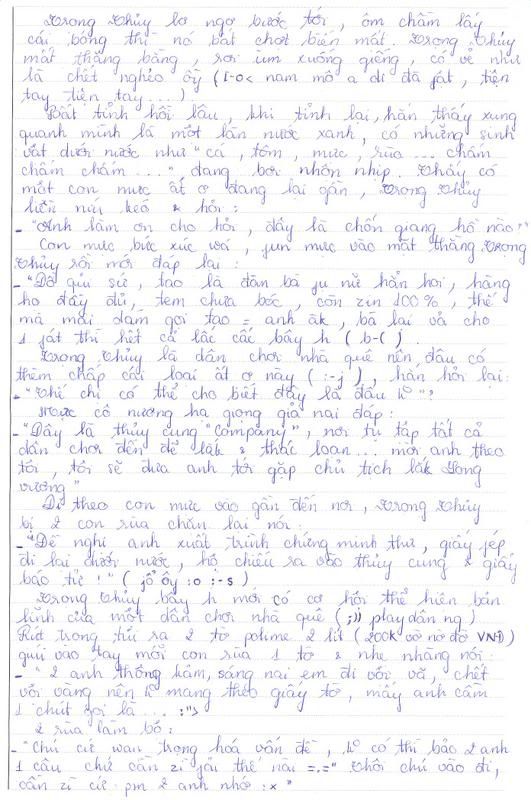 Trọng Thủy lơ ngơ bước tới, ôm chầm lấy
cái bóng thì nó bất chợt biến mất. Trọng Thủy
mất thăng bằng, rơi ùm xuống giếng, có vẻ như
là chết nghẻo òy (1-0< nam mô a di đà fật, tiện
tay tiện tay...)
Bất tỉnh hồi lâu, khi tỉnh lại, hắn thấy xung
quanh mình là một làn nước xanh, có những sinh
vật dưới nước như "cá, tôm, mực, rùa... chấm
chấm chấm...", đang bơi nhộn nhịp. Thấy có
một con mực ất ơ đang lại gần, Trọng Thủy
liền níu kéo & hỏi:
- "Anh làm ơn cho hỏi, đây là chốn giang hồ nào?"
Con mực bức xúc wá, fun mực vào mặt thằng Trọng
Thủy rồi mới đáp lại:
- "Đồ quỉ sứ, tao là đàn bà fụ nữ hẳn hoi, hàng
họ đầy đủ, tem chưa bóc, còn zin 100%, thế
mà mài dám gọi tao = anh àk, bà lại vả cho
1 fát thì hết cả lấc cấc bây h (b-( )
Trọng Thủy là dân chơi nhà quê nên đâu có
thèm chấp cái loại ất ơ này ( :-j ), hắn hỏi lại:
- "Thế chị có thể cho biết đây là đâu k°"?
Mực cô nương hạ giọng giả nai đáp:
- "Đây là thủy cung "Company", nơi tụ tập tất cả
dân chơi đến để lắk & thác loạn... mời anh theo
tôi, tôi sẽ đưa anh tới gặp chủ tịch lắk Long
vương"
Đi theo con mực vào gần đến nơi, Trọng Thủy
bị 2 con rùa chặn lại nói:
- "Đề nghị anh xuất trình chứng minh thư, giấy fép
đi lại dưới nước, hộ chiếu ra vào thủy cung & giấy
báo tử !" ( :o :-s )
Trọng Thủy bây h mới có cơ hội thể hiện bản
lĩnh của một dân chơi nhà quê ( ;)) play dân ng)
Rút trong túi ra 2 tờ polime 2 lít (200k vờ nờ đờ VNĐ)
gúi vào tay mỗi con rùa 1 tờ & nhẹ nhàng nói:
- "2 anh thông kảm, sáng nai em đi vội vã, chết
vội vàng nên k° mang theo giấy tờ, mấy anh cầm
1 chút gọi là ... :">
2 rùa làm bộ:
- "Chú cứ wan trọng hoá vấn đề, k° có thì bảo 2 anh
1 câu chứ cần zì fải thế nài =.=" Thôi chú vào đi,
cần zì cứ pm 2 anh nhớ :x"